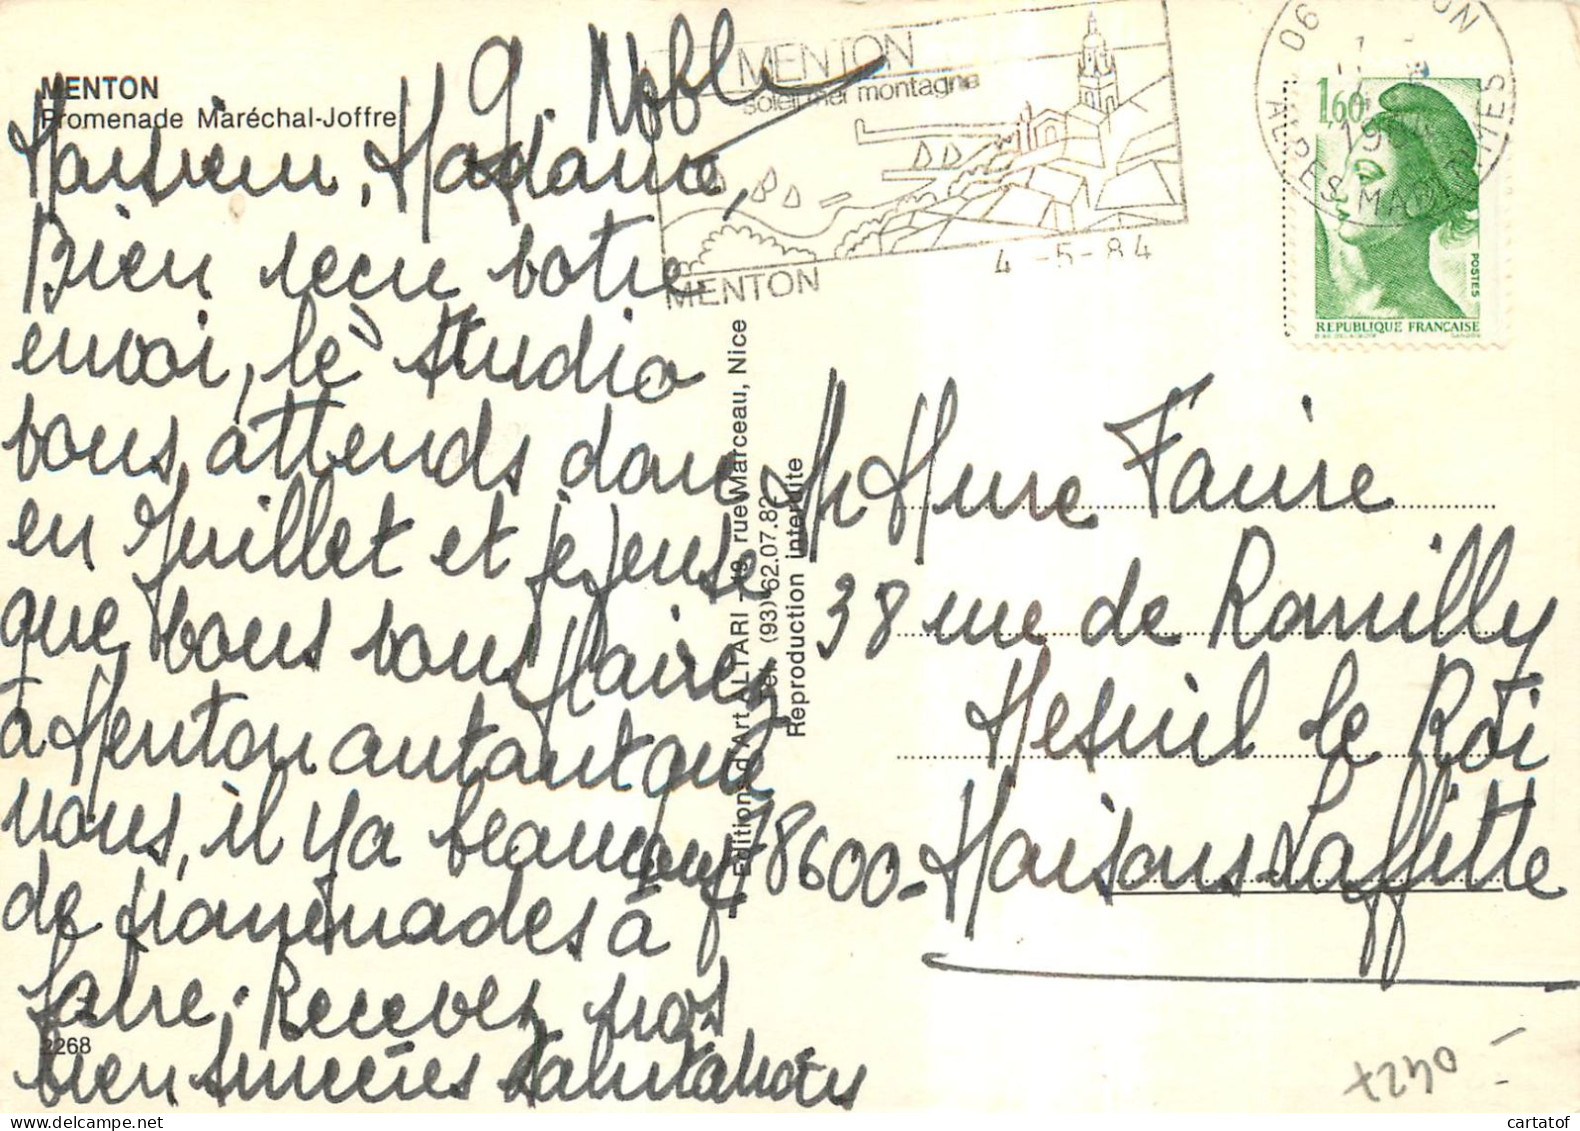 MENTON
Promenade Maréchal-Joffre
G. Noble
Monsieur, Madame,
Bien recu votre
envoi, le studio
vous attends donc
en Juillet et je pense
que vous vous plairez
à Menton autant que
nous, il ya beaucoup
de promenades à
faire. Recevez nos
bien sincères salutations
2268
MENTON
soleil mer montagne
MENTON
4 -5-84
06 MENTON
ALPES MARITIMES
1,60
POSTES
REPUBLIQUE FRANÇAISE
Editions d'Art ALTARI - 19, rue Marceau, Nice
Tél. (93) 62.07.82
Reproduction interdite
Mr Mme Faure
38 rue de Romilly
Mesnil le Roi
78600 - Maisons-Laffitte
7240
cartatof